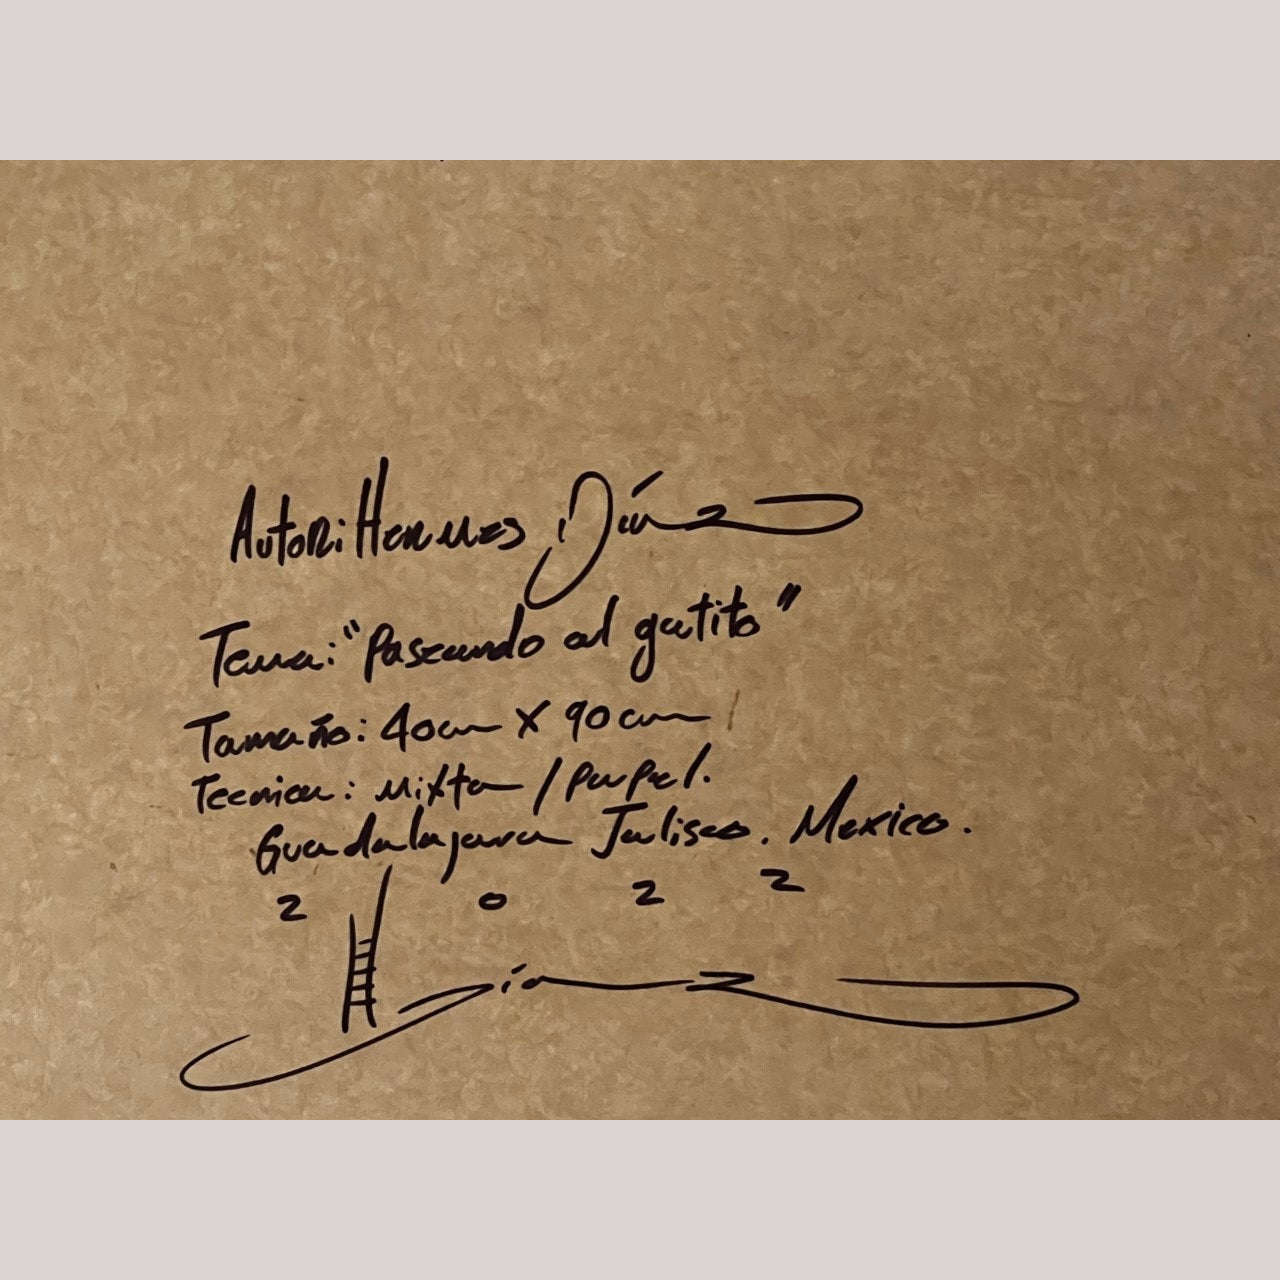 Autor: Hermes Díaz
Tema: "Paseando al gatito"
Tamaño: 40cm X 90cm
Tecnica: Mixta / Papel.
Guadalajara Jalisco. Mexico.
2 0 2 2
Díaz